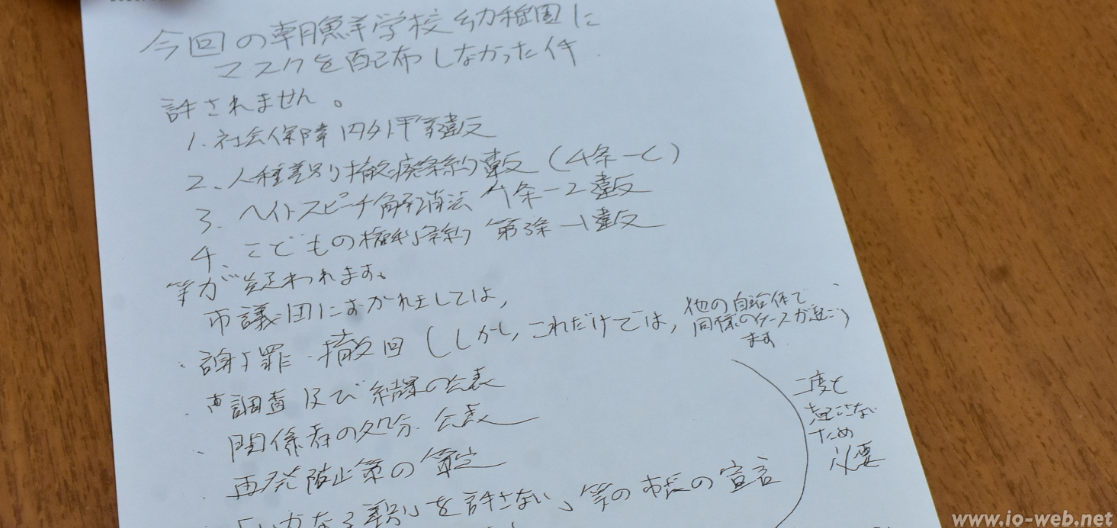 今回の朝鮮学校幼稚園に
マスクを配布しなかった件
許されません。
1. 社会保障内外平等違反
2. 人種差別撤廃条約違反 (4条-C)
3. ヘイトスピーチ解消法 4条-2違反
4. こどもの権利条約 第3条-1違反
等が疑われます。
市議団におかれましては、
・謝罪・撤回 (しかし、これだけでは、
他の自治体で
同様のケースが起こり
ます
・調査及び結果の公表
関係者の処分 公表
再発防止策の策定
「いかなる差別を許さない」等の市長の宣言
二度と
起こさない
ため
必要
www.io-web.net